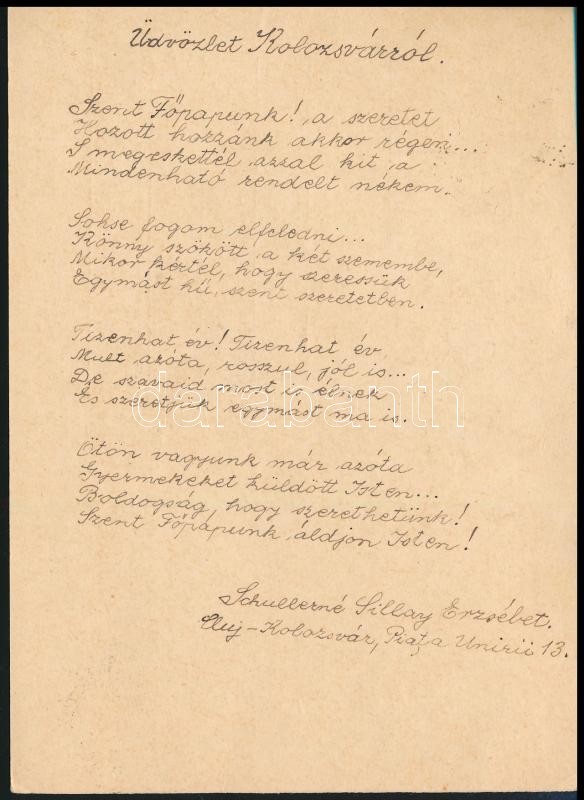 Üdvözlet Kolozsvárról.
Szent Főpapunk! a szeretet
Hozott hozzánk akkor régen...
S megeskettél azzal kit a
Mindenható rendelt nékem.
Sohse fogom elfeledni...
Könny szökött a két szemembe,
Mikor kértél, hogy szeressük
Egymást hű, szent szeretetben.
Tizenhat év! Tizenhat év
Mult azóta, rosszul, jól is...
De szavaid most is élnek
És szeretjük egymást ma is.
Ötön vagyunk már azóta
Gyermekeket küldött Isten...
Boldogság, hogy szerethetünk!
Szent Főpapunk áldjon Isten!
Schullerné Sillay Erzsébet.
Cluj-Kolozsvár, Piața Unirii 13.
darabanth